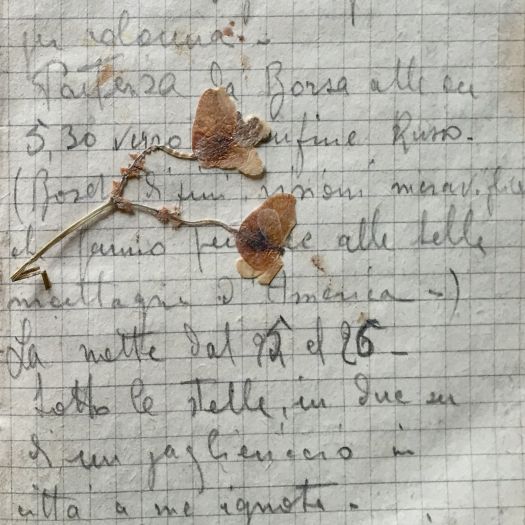 colonna. -
Partenza da Borsa alle ore
5,30 verso confine Russo.
(Bordi di visioni
fanno alle belle
montagne d'America -)
La notte dal 25 al 26 -
sotto le stelle, in due su
di un pagliericcio in
città a me ignota. -